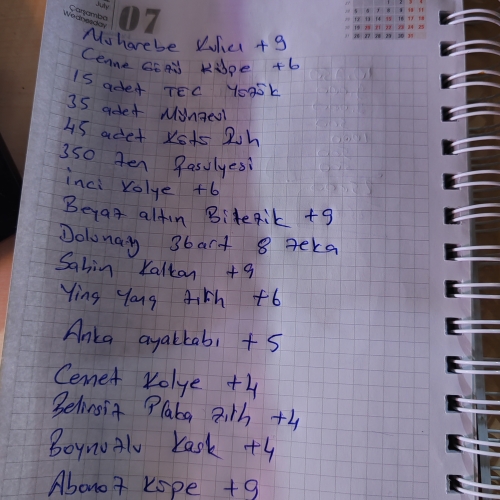 July
Çarşamba
Wednesday
07
Muharebe Kılıcı +9
Cenne Gözü Küpe +6
15 adet TEC Yüzük
35 adet Münzevi
45 adet Kötü Ruh
350 Zen Fasulyesi
inci Kolye +6
Beyaz altın Bilezik +9
Dolunay 36art 8 zeka
Şahin Kalkan +9
Ying Yang Zırh +6
Anka ayakkabı +5
Cennet Kolye +4
Belirsiz Plaka Zırh +4
Boynuzlu Kask +4
Abanoz Küpe +9